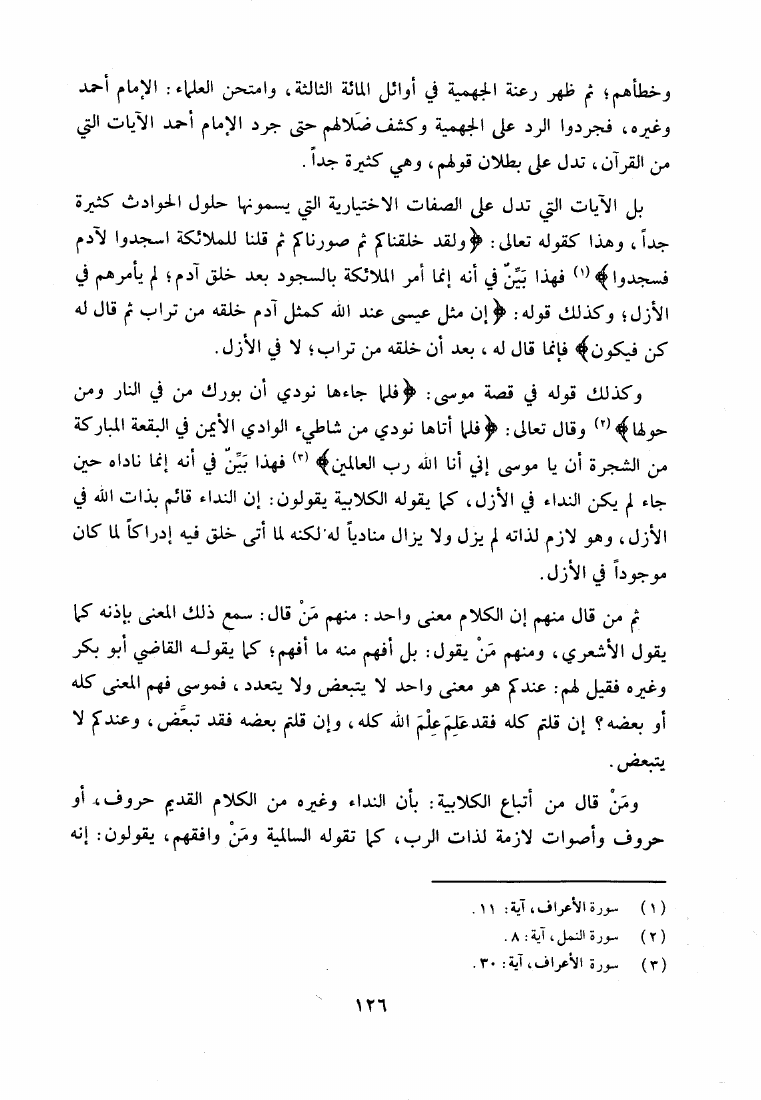 وخطأهم؛ ثم ظهر رعنة الجهمية في أوائل المائة الثالثة، وامتحن العلماء: الإمام أحمد
وغيره، فجردوا الرد على الجهمية وكشف ضَلالهم حتى جرد الإمام أحمد الآيات التي
من القرآن، تدل على بطلان قولهم، وهي كثيرة جداً.
بل الآيات التي تدل على الصفات الاختيارية التي يسمونها حلول الحوادث كثيرة
جداً، وهذا كقوله تعالى: ﴿ولقد خلقناكم ثم صورناكم ثم قلنا للملائكة اسجدوا لآدم
فسجدوا﴾ (١) فهذا بَيِّنٌ في أنه إنما أمر الملائكة بالسجود بعد خلق آدم؛ لم يأمرهم في
الأزل؛ وكذلك قوله: ﴿إن مثل عيسى عند الله كمثل آدم خلقه من تراب ثم قال له
كن فيكون﴾ فإنما قال له، بعد أن خلقه من تراب؛ لا في الأزل.
وكذلك قوله في قصة موسى: ﴿فلما جاءها نودي أن بورك من في النار ومن
حولها﴾ (٢) وقال تعالى: ﴿فلما أتاها نودي من شاطيء الوادي الأيمن في البقعة المباركة
من الشجرة أن يا موسى إني أنا الله رب العالمين﴾ (٣) فهذا بَيِّنٌ في أنه إنما ناداه حين
جاء لم يكن النداء في الأزل، كما يقوله الكلابية يقولون: إن النداء قائم بذات الله في
الأزل، وهو لازم لذاته لم يزل ولا يزال منادياً له لكنه لما أتى خلق فيه إدراكاً لما كان
موجوداً في الأزل.
ثم من قال منهم إن الكلام معنى واحد: منهم مَنْ قال: سمع ذلك المعنى بإذنه كما
يقول الأشعري، ومنهم مَنْ يقول: بل أفهم منه ما أفهم؛ كما يقولـه القاضي أبو بكر
وغيره فقيل لهم: عندكم هو معنى واحد لا يتبعض ولا يتعدد، فموسى فهم المعنى كله
أو بعضه؟ إن قلتم كله فقد عَلِمَ عِلْمَ الله كله، وإن قلتم بعضه فقد تبعَّض، وعندكم لا
يتبعض.
ومَنْ قال من أتباع الكلابية: بأن النداء وغيره من الكلام القديم حروف، أو
حروف وأصوات لازمة لذات الرب، كما تقوله السالمية ومَنْ وافقهم، يقولون: إنه
(١) سورة الأعراف، آية: ١١.
(٢) سورة النمل، آية: ٨.
(٣) سورة الأعراف، آية: ٣٠.
١٢٦